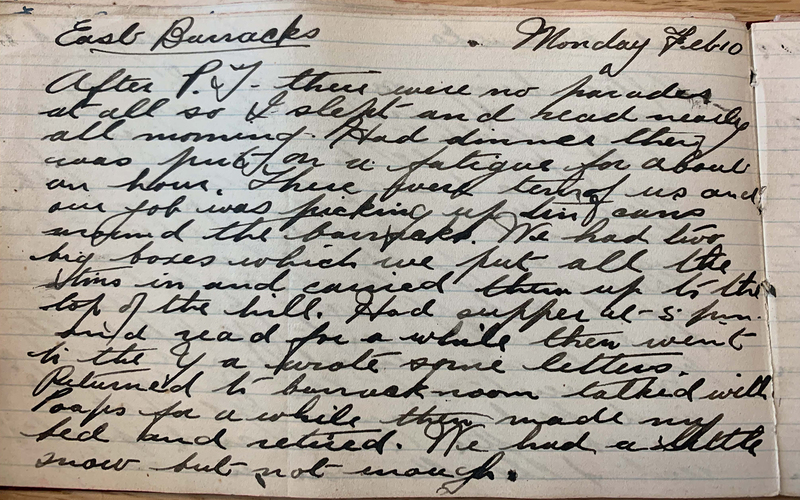 East Barracks . Monday Feb 10
After P.T. there were no parades
at all so I slept and read nearly
all morning. Had dinner then
was put on a fatigue for about
an hour. There were ten of us and
our job was picking up tin cans
around the barracks. We had two
big boxes which we put all the
tins in and carried them up to the
top of the hill. Had supper at 5 p.m.
and read for a while then went
to the Y a wrote some letters.
Returned to barrackroom talked with
for a while then made my
bed and retired. We had a little
snow but not enough.